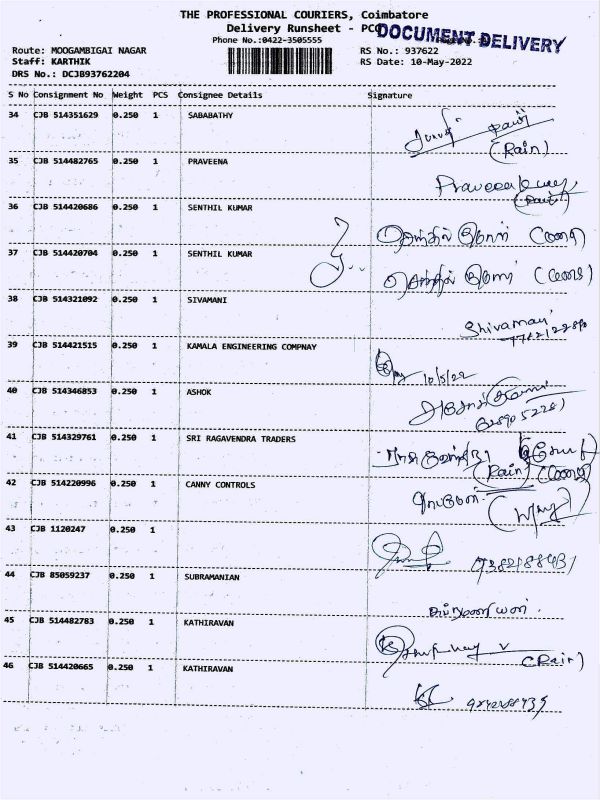 THE PROFESSIONAL COURIERS, Coimbatore
Delivery Runsheet - PCO
DOCUMENT DELIVERY
Phone No.:0422-3505555
Route: MOOGAMBIGAI NAGAR
RS No.: 937622
Staff: KARTHIK
RS Date: 10-May-2022
DRS No.: DCJB93762204
S No Consignment No Weight PCS Consignee Details Signature
34 CJB 514351629 0.250 1 SABABATHY
(Rain)
35 CJB 514482765 0.250 1 PRAVEENA
36 CJB 514420686 0.250 1 SENTHIL KUMAR
செந்தில் குமார்
37 CJB 514420704 0.250 1 SENTHIL KUMAR
செந்தில் குமார்
38 CJB 514321092 0.250 1 SIVAMANI
39 CJB 514421515 0.250 1 KAMALA ENGINEERING COMPNAY
10/5/22
40 CJB 514346853 0.250 1 ASHOK
41 CJB 514329761 0.250 1 SRI RAGAVENDRA TRADERS
(Rain)
42 CJB 514220996 0.250 1 CANNY CONTROLS
43 CJB 1120247 0.250 1
44 CJB 85059237 0.250 1 SUBRAMANIAN
45 CJB 514482783 0.250 1 KATHIRAVAN
(Rain)
46 CJB 514420665 0.250 1 KATHIRAVAN